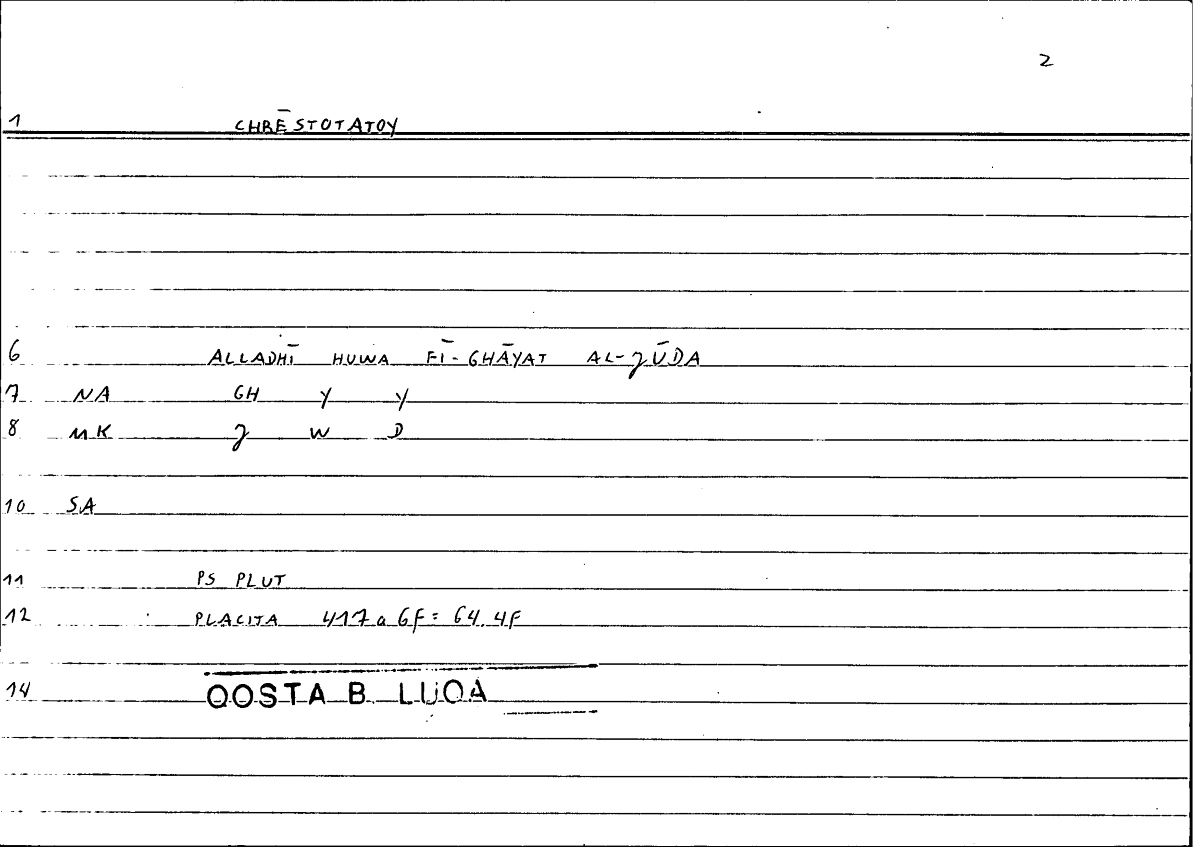 2
1 CHRĒSTOTATOY
6 ALLADHĪ HUWA FĪ-GHĀYAT AL-ǦŪDA
7 NA GH Y Y
8 MK Ǧ W D
10 SA
11 PS PLUT
12 PLACITA 417a 6f = 64.4f
14 QOSTA B LUQA